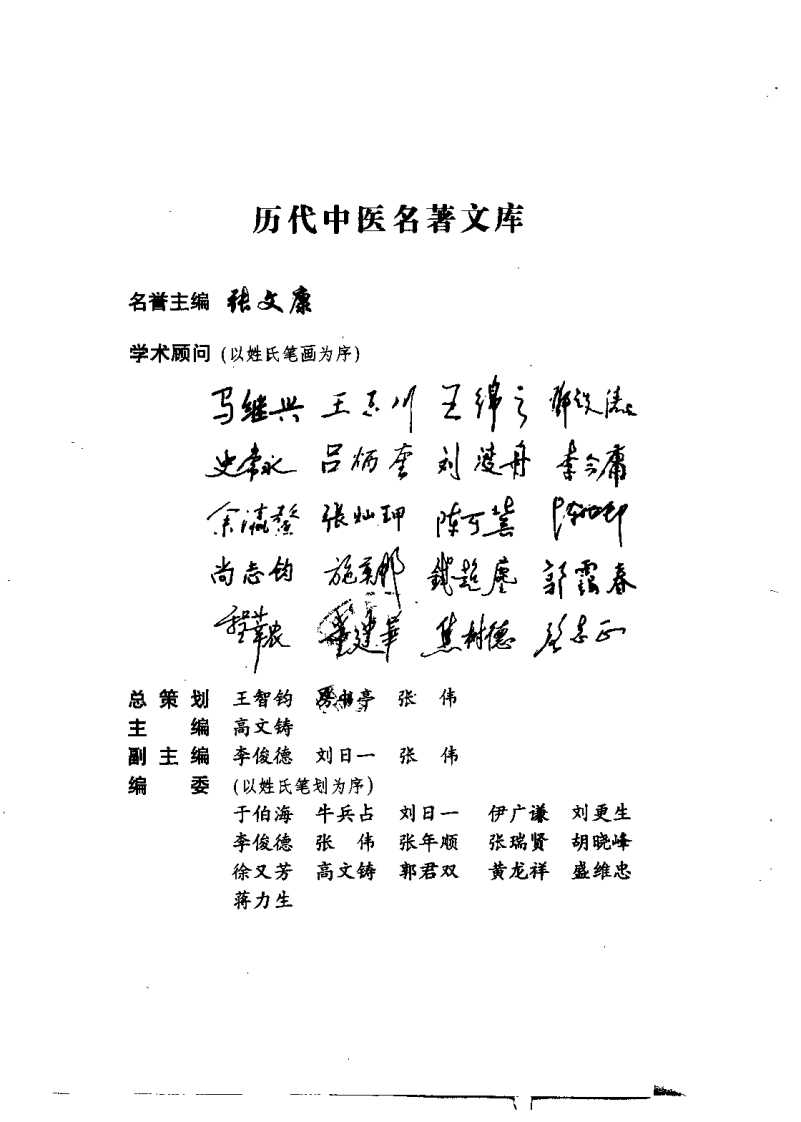 历代中医名著文库
名誉主编 张文康
学术顾问 (以姓氏笔画为序)
马继兴 王玉川 王绵之 邓铁涛
史常永 吕炳奎 刘渡舟 李今庸
余瀛鳌 张灿玾 陈可冀
尚志钧 施奠邦 钱超尘 郭霭春
程莘农 董建华 焦树德 路志正
总策划 王智钧 书亭 张 伟
主 编 高文铸
副主编 李俊德 刘日一 张 伟
编 委 (以姓氏笔划为序)
于伯海 牛兵占 刘日一 伊广谦 刘更生
李俊德 张 伟 张年顺 张瑞贤 胡晓峰
徐又芳 高文铸 郭君双 黄龙祥 盛维忠
蒋力生